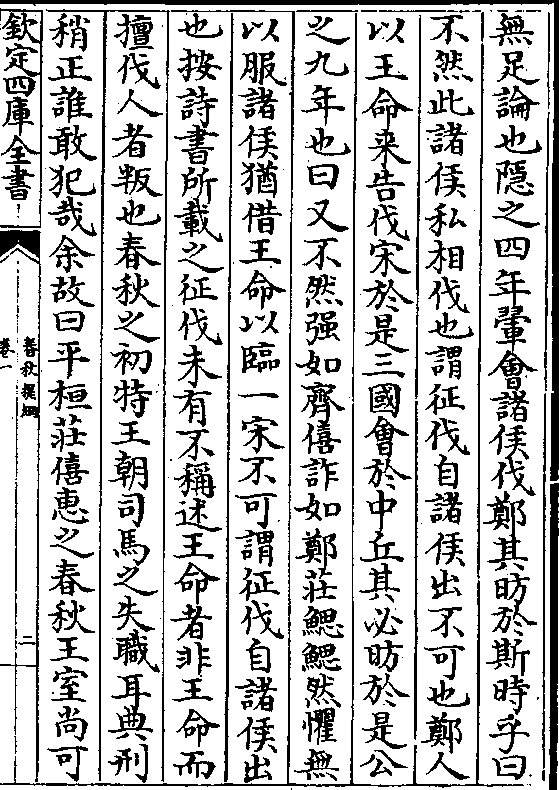 無足論也隠之四年翬會諸侯伐鄭其昉於斯時乎曰
不然此諸侯私相伐也謂征伐自諸侯出不可也鄭人
以王命来告伐宋於是三國會於中丘其必昉於是公
之九年也曰又不然强如齊僖詐如鄭莊鰓鰓然懼無
以服諸侯猶借王命以臨一宋不可謂征伐自諸侯出
也按詩書所載之征伐未有不稱述王命者非王命而
擅伐人者叛也春秋之初特王朝司馬之失職耳典刑
稍正誰敢犯哉余故曰平桓莊僖惠之春秋王室尚可
欽定四庫全書
春秋提綱
卷一
二